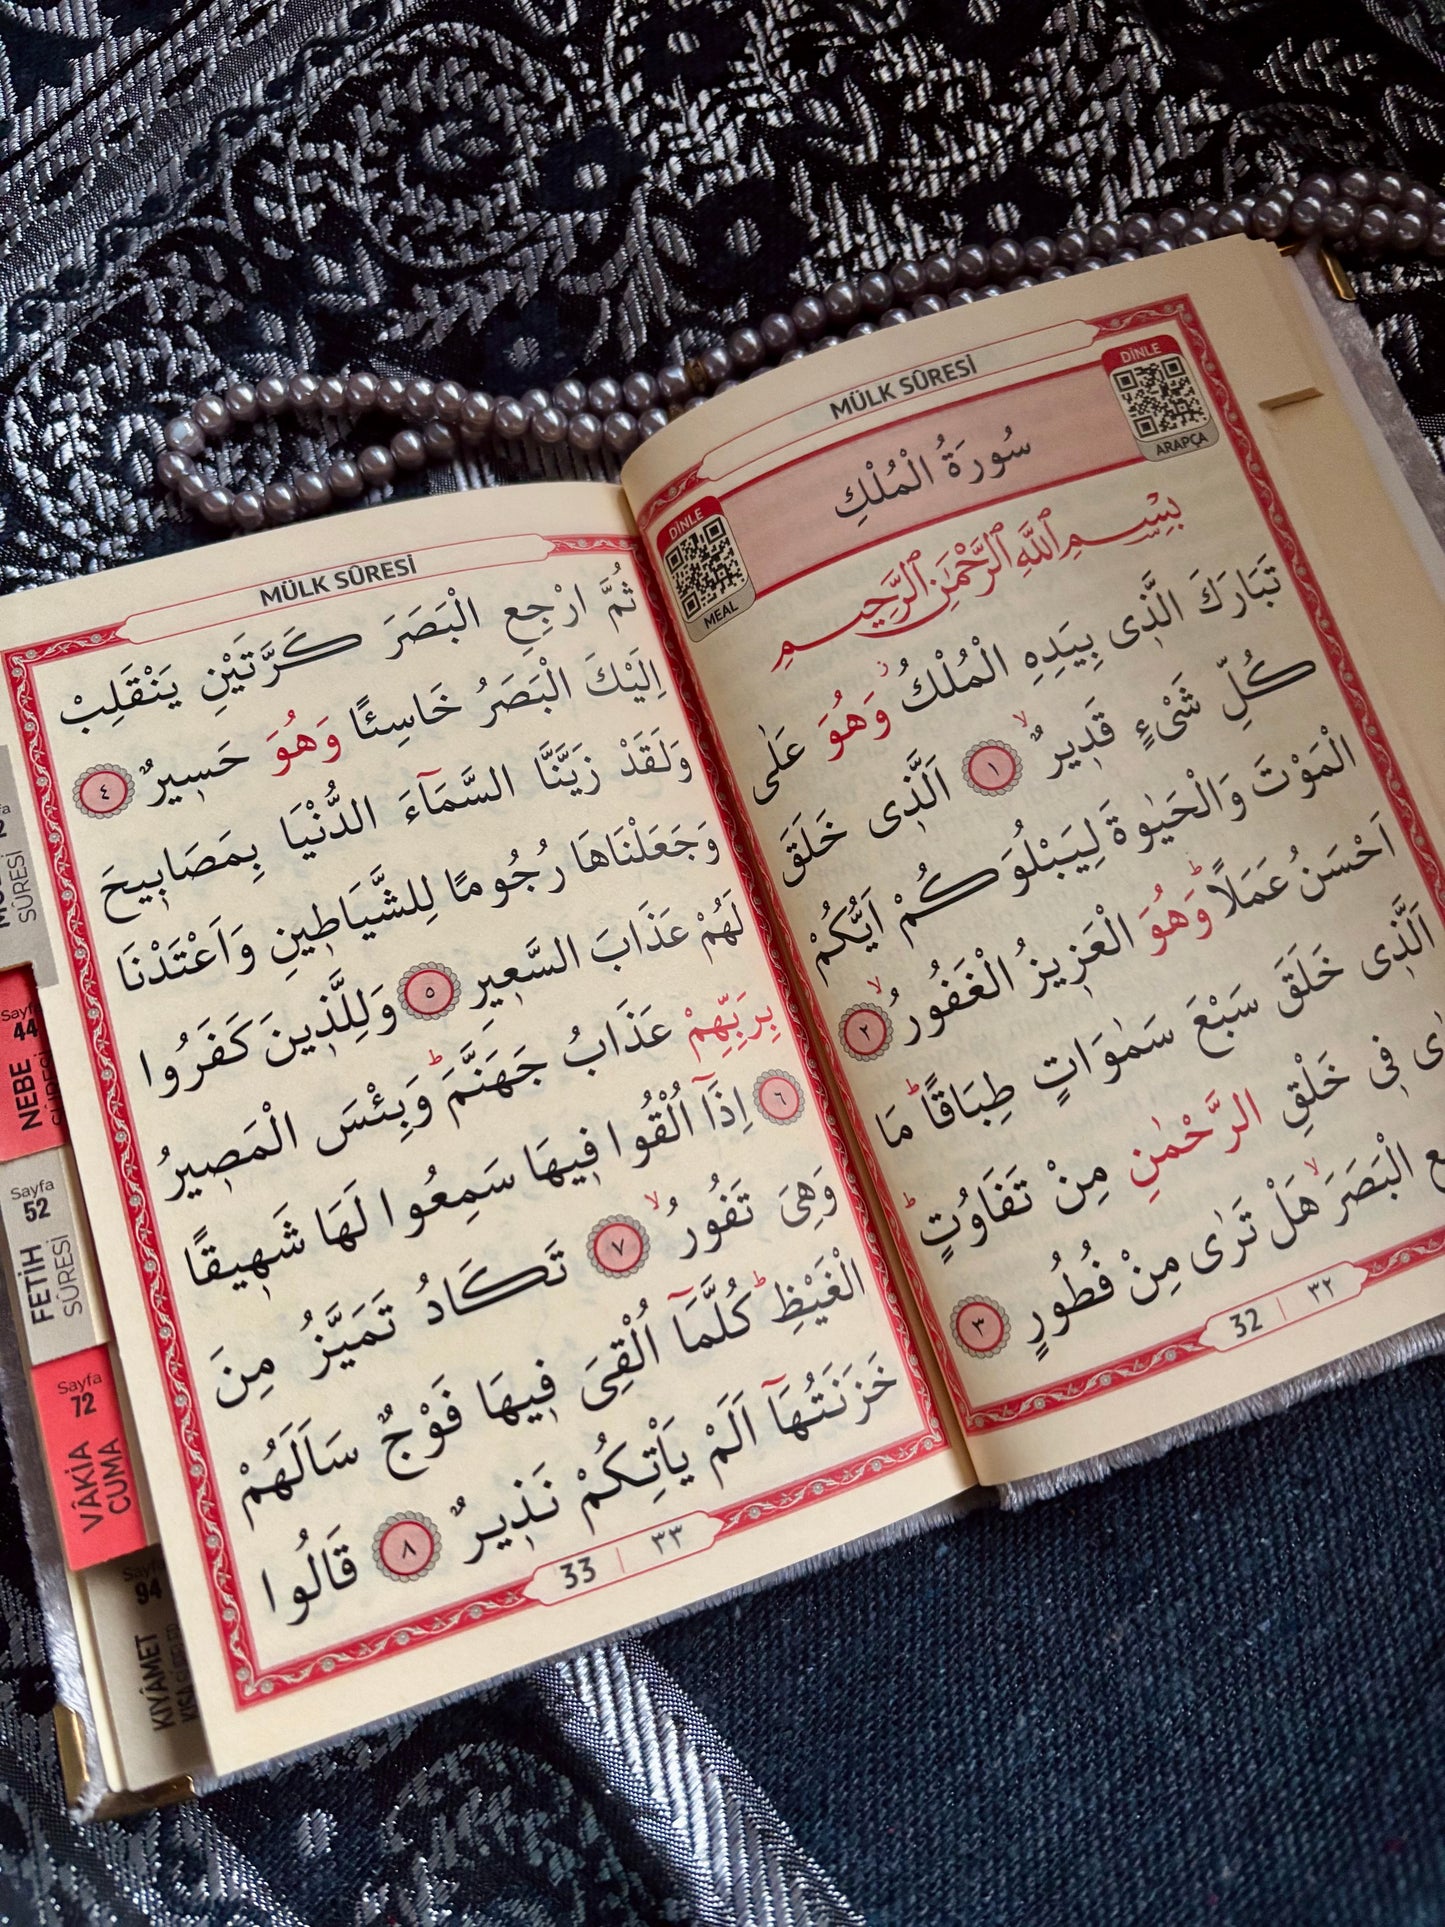 MÜLK SÛRESİ
DİNLE
ARAPÇA
سُورَةُ الْمُلْكِ
DİNLE
MEAL
بِسْمِ ٱللّٰهِ ٱلرَّحْمٰنِ ٱلرَّحِيمِ
تَبَارَكَ الَّذٖى بِيَدِهِ الْمُلْكُ وَهُوَ عَلٰى
كُلِّ شَىْءٍ قَدٖيرٌ ١ اَلَّذٖى خَلَقَ
الْمَوْتَ وَالْحَيٰوةَ لِيَبْلُوَكُمْ اَيُّكُمْ
اَحْسَنُ عَمَلًا وَهُوَ الْعَزٖيزُ الْغَفُورُ ٢
اَلَّذٖى خَلَقَ سَبْعَ سَمٰوَاتٍ طِبَاقًا مَا
فٖى خَلْقِ الرَّحْمٰنِ مِنْ تَفَاوُتٍ
الْبَصَرَ هَلْ تَرٰى مِنْ فُطُورٍ ٣
32 | ٣٢
MÜLK SÛRESİ
ثُمَّ ارْجِعِ الْبَصَرَ كَرَّتَيْنِ يَنْقَلِبْ
اِلَيْكَ الْبَصَرُ خَاسِئًا وَهُوَ حَسٖيرٌ ٤
وَلَقَدْ زَيَّنَّا السَّمَآءَ الدُّنْيَا بِمَصَابٖيحَ
وَجَعَلْنَاهَا رُجُومًا لِلشَّيَاطٖينِ وَاَعْتَدْنَا
لَهُمْ عَذَابَ السَّعٖيرِ ٥ وَلِلَّذٖينَ كَفَرُوا
بِرَبِّهِمْ عَذَابُ جَهَنَّمَ وَبِئْسَ الْمَصٖيرُ
٦ اِذَآ اُلْقُوا فٖيهَا سَمِعُوا لَهَا شَهٖيقًا
وَهِىَ تَفُورُ ٧ تَكَادُ تَمَيَّزُ مِنَ
الْغَيْظِ كُلَّمَآ اُلْقِىَ فٖيهَا فَوْجٌ سَاَلَهُمْ
خَزَنَتُهَآ اَلَمْ يَاْتِكُمْ نَذٖيرٌ ٨ قَالُوا
33 | ٣٣
SÛRESİ
Sayfa
44
NEBE
Sayfa
52
FETİH
SÛRESİ
Sayfa
72
VÂKİA
CUMA
Sayfa
94
KIYÂMET